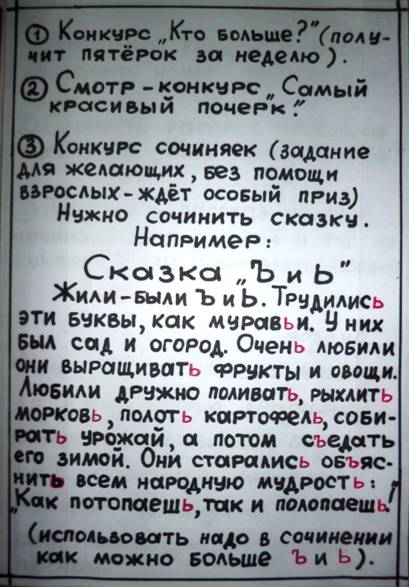 ① Конкурс „Кто больше?" (полу-
чит пятёрок за неделю).
② Смотр-конкурс „Самый
красивый почерк".
③ Конкурс сочиняек (задание
для желающих, без помощи
взрослых - ждёт особый приз)
Нужно сочинить сказку.
Например:
Сказка „Ъ и Ь"
Жили-были Ъ и Ь. Трудились
эти буквы, как муравьи. У них
был сад и огород. Очень любили
они выращивать фрукты и овощи.
Любили дружно поливать, рыхлить
морковь, полоть картофель, соби-
рать урожай, а потом съедать
его зимой. Они старались объяс-
нить всем народную мудрость:
„Как потопаешь, так и полопаешь!"
(использовать надо в сочинении
как можно больше Ъ и Ь).